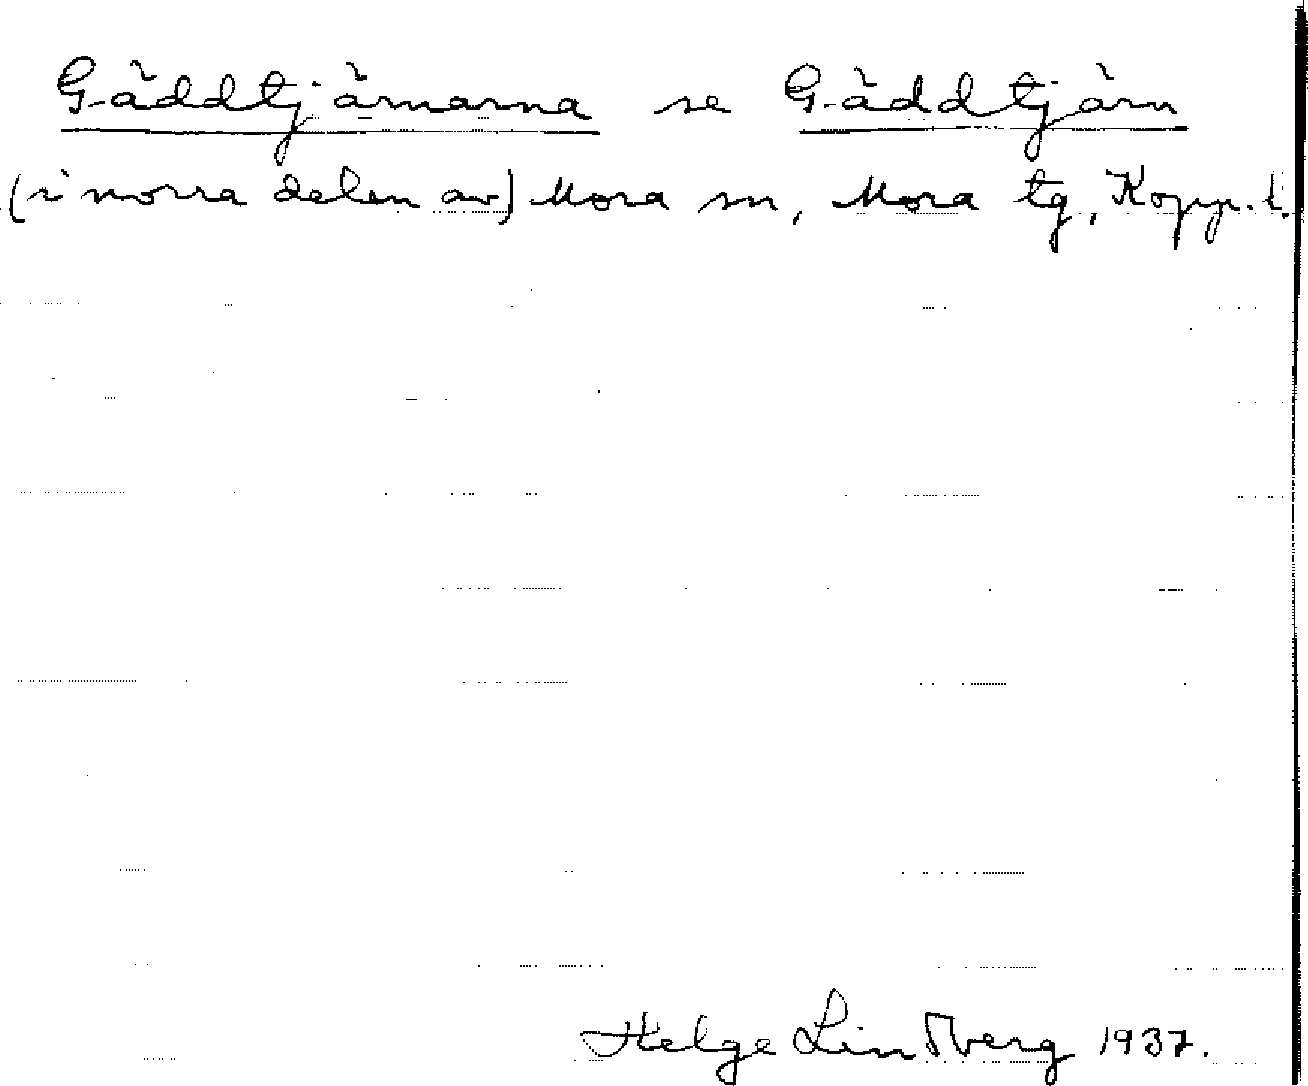 Gäddtjärnarna se Gäddtjärn
(i norra delen av) Mora sn, Mora tg, Kopp. l.
Helge Lindberg 1937.